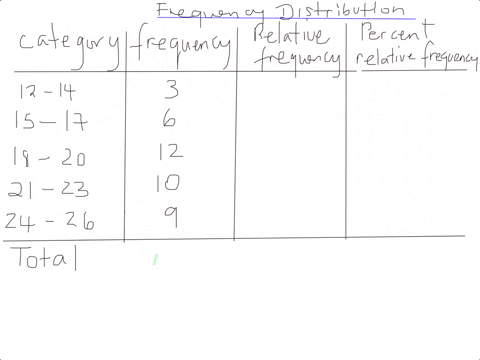 Frequency Distribution
Category frequency Relative frequency Percent relative frequency
12-14 3
15-17 6
18-20 12
21-23 10
24-26 9
Total